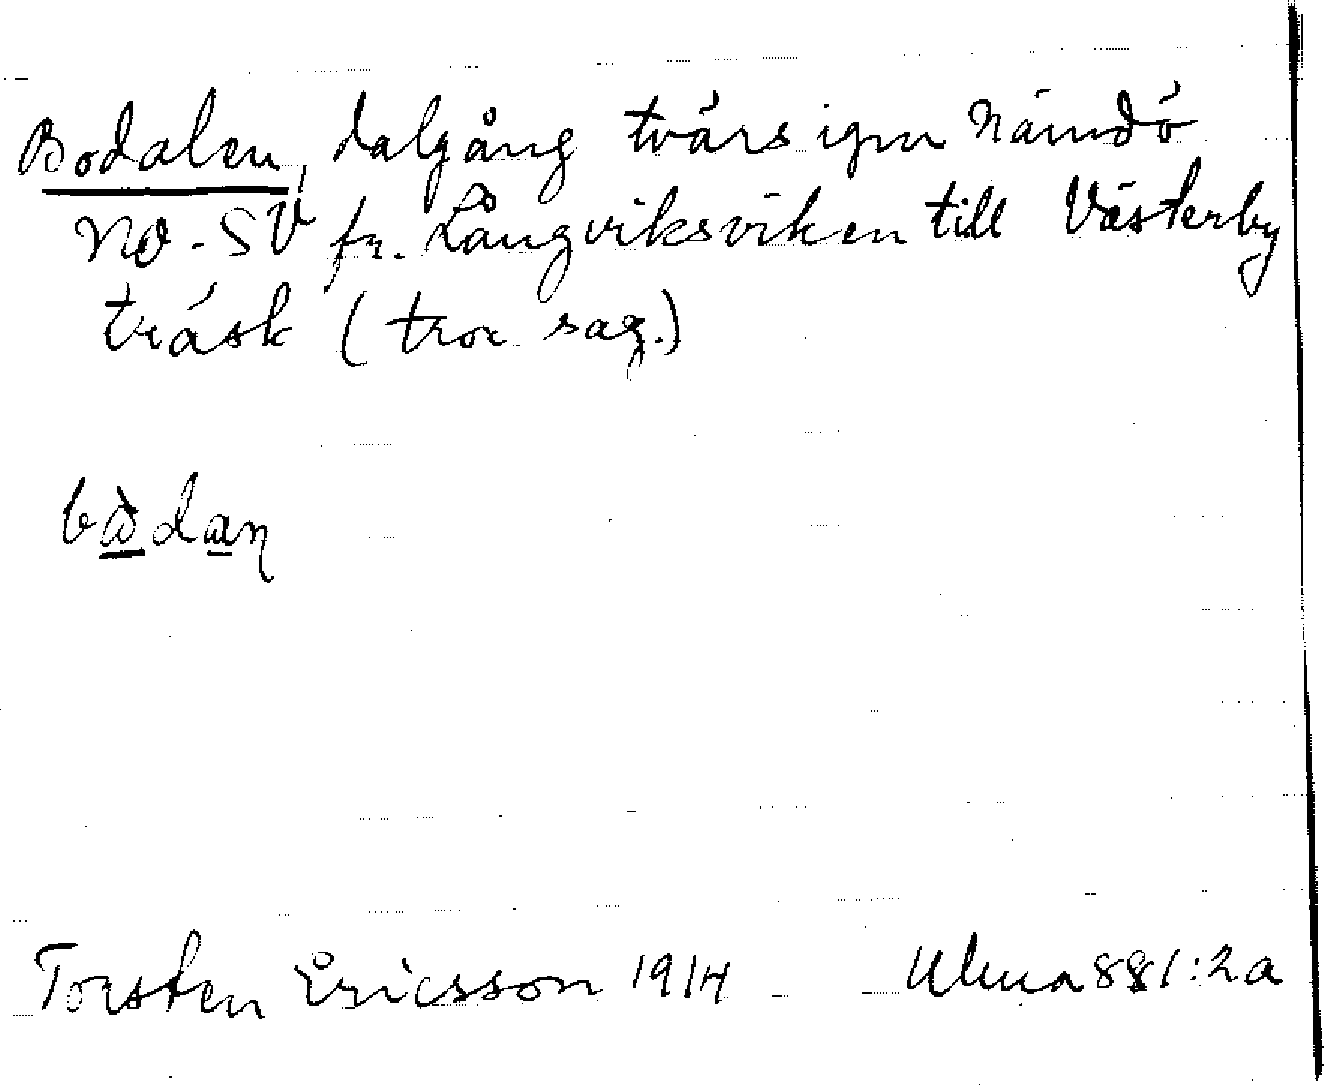 Bodalen, dalgång tvärs igm Nämdö
NO-SV fr. Långviksviken till Västerby
träsk (tror sag.)
bὼdaṇ
Torsten Ericsson 1914 Uluma 881:2a